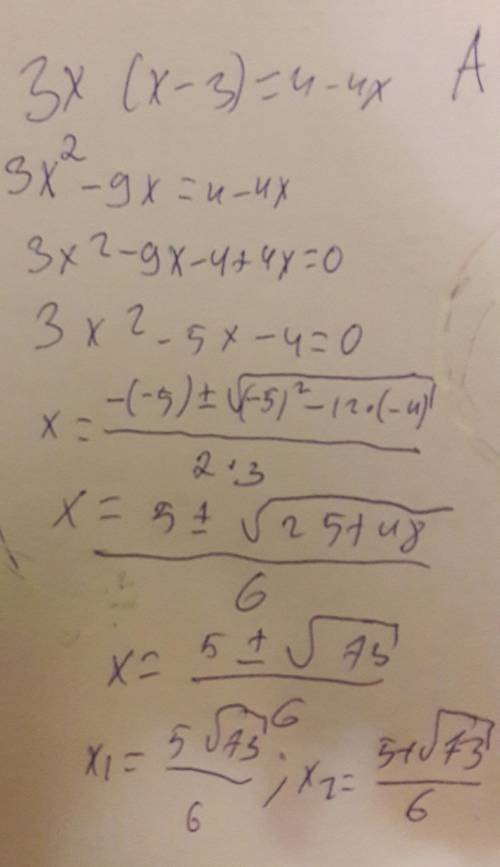 3x (x-3)=4-4x A
3x²-9x=4-4x
3x²-9x-4+4x=0
3x²-5x-4=0
x=(-(-5)±√((-5)²-12·(-4)))/(2·3)
x=(5±√(25+48))/6
x=(5±√73)/6
x₁=(5√73)/6; x₂=(5+√73)/6